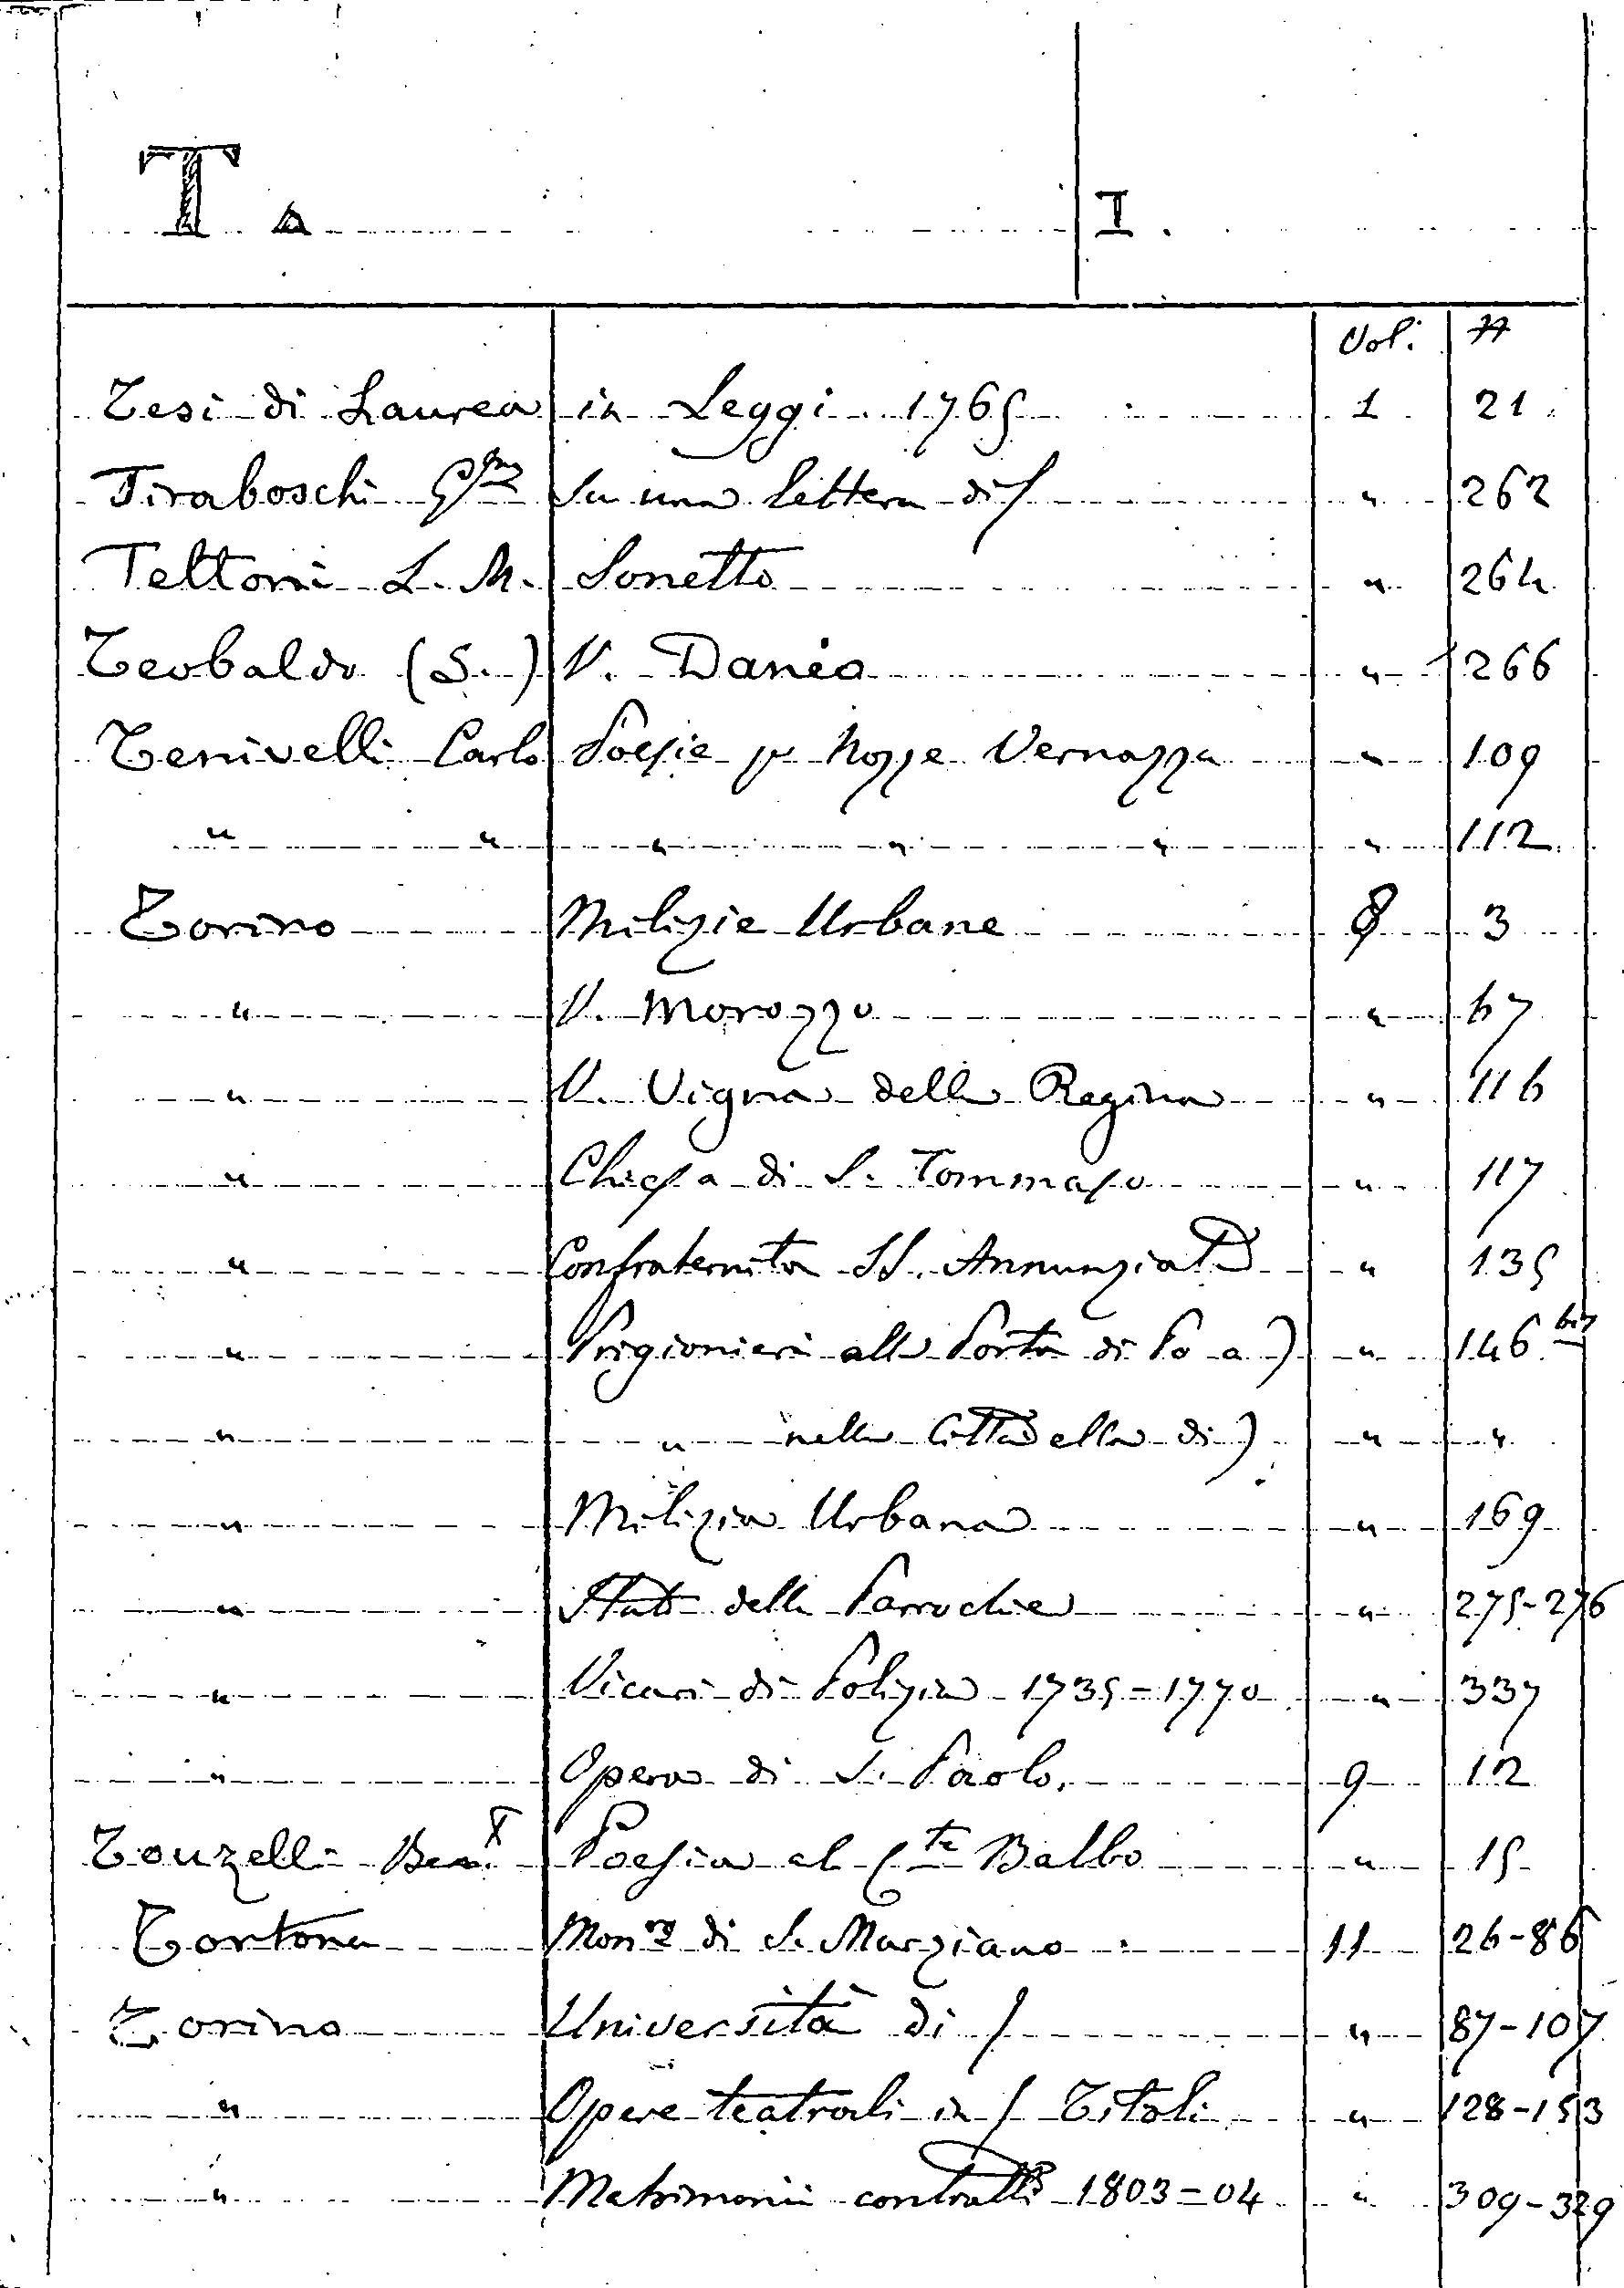 T. I.
Vol. N
Tesi di Laurea in Leggi. 1765 1 21
Tiraboschi Gmo Su una lettera di / " 262
Teltoni L. M. Sonetto " 264
Teobaldo (S.) V. Daneo " 266
Tenivelli Carlo Poesie p nozze Vernazza " 109
" " " " " " 112
Torino Milizie Urbane 8 3
" V. Morozzo " 67
" V. Vigna della Regina " 116
" Chiesa di S. Tommaso " 117
" Confraternita SS. Annunziata " 135
" Prigionieri alla Porta di Po a ) " 146 bis
" " nella Cittadella di ) " "
" Milizia Urbana " 169
" Stato delle Parrochie " 275-276
" Vicari di Polizia 1735-1770 " 337
" Opera di S. Paolo. 9 12
Touzelli Poesia al Cte Balbo " 15
Tortona Monre di S. Marziano 11 26-86
Torino Università di / " 87-107
" Opere teatrali in / Titoli " 128-153
" Matrimoni contratti 1803-04 " 309-329